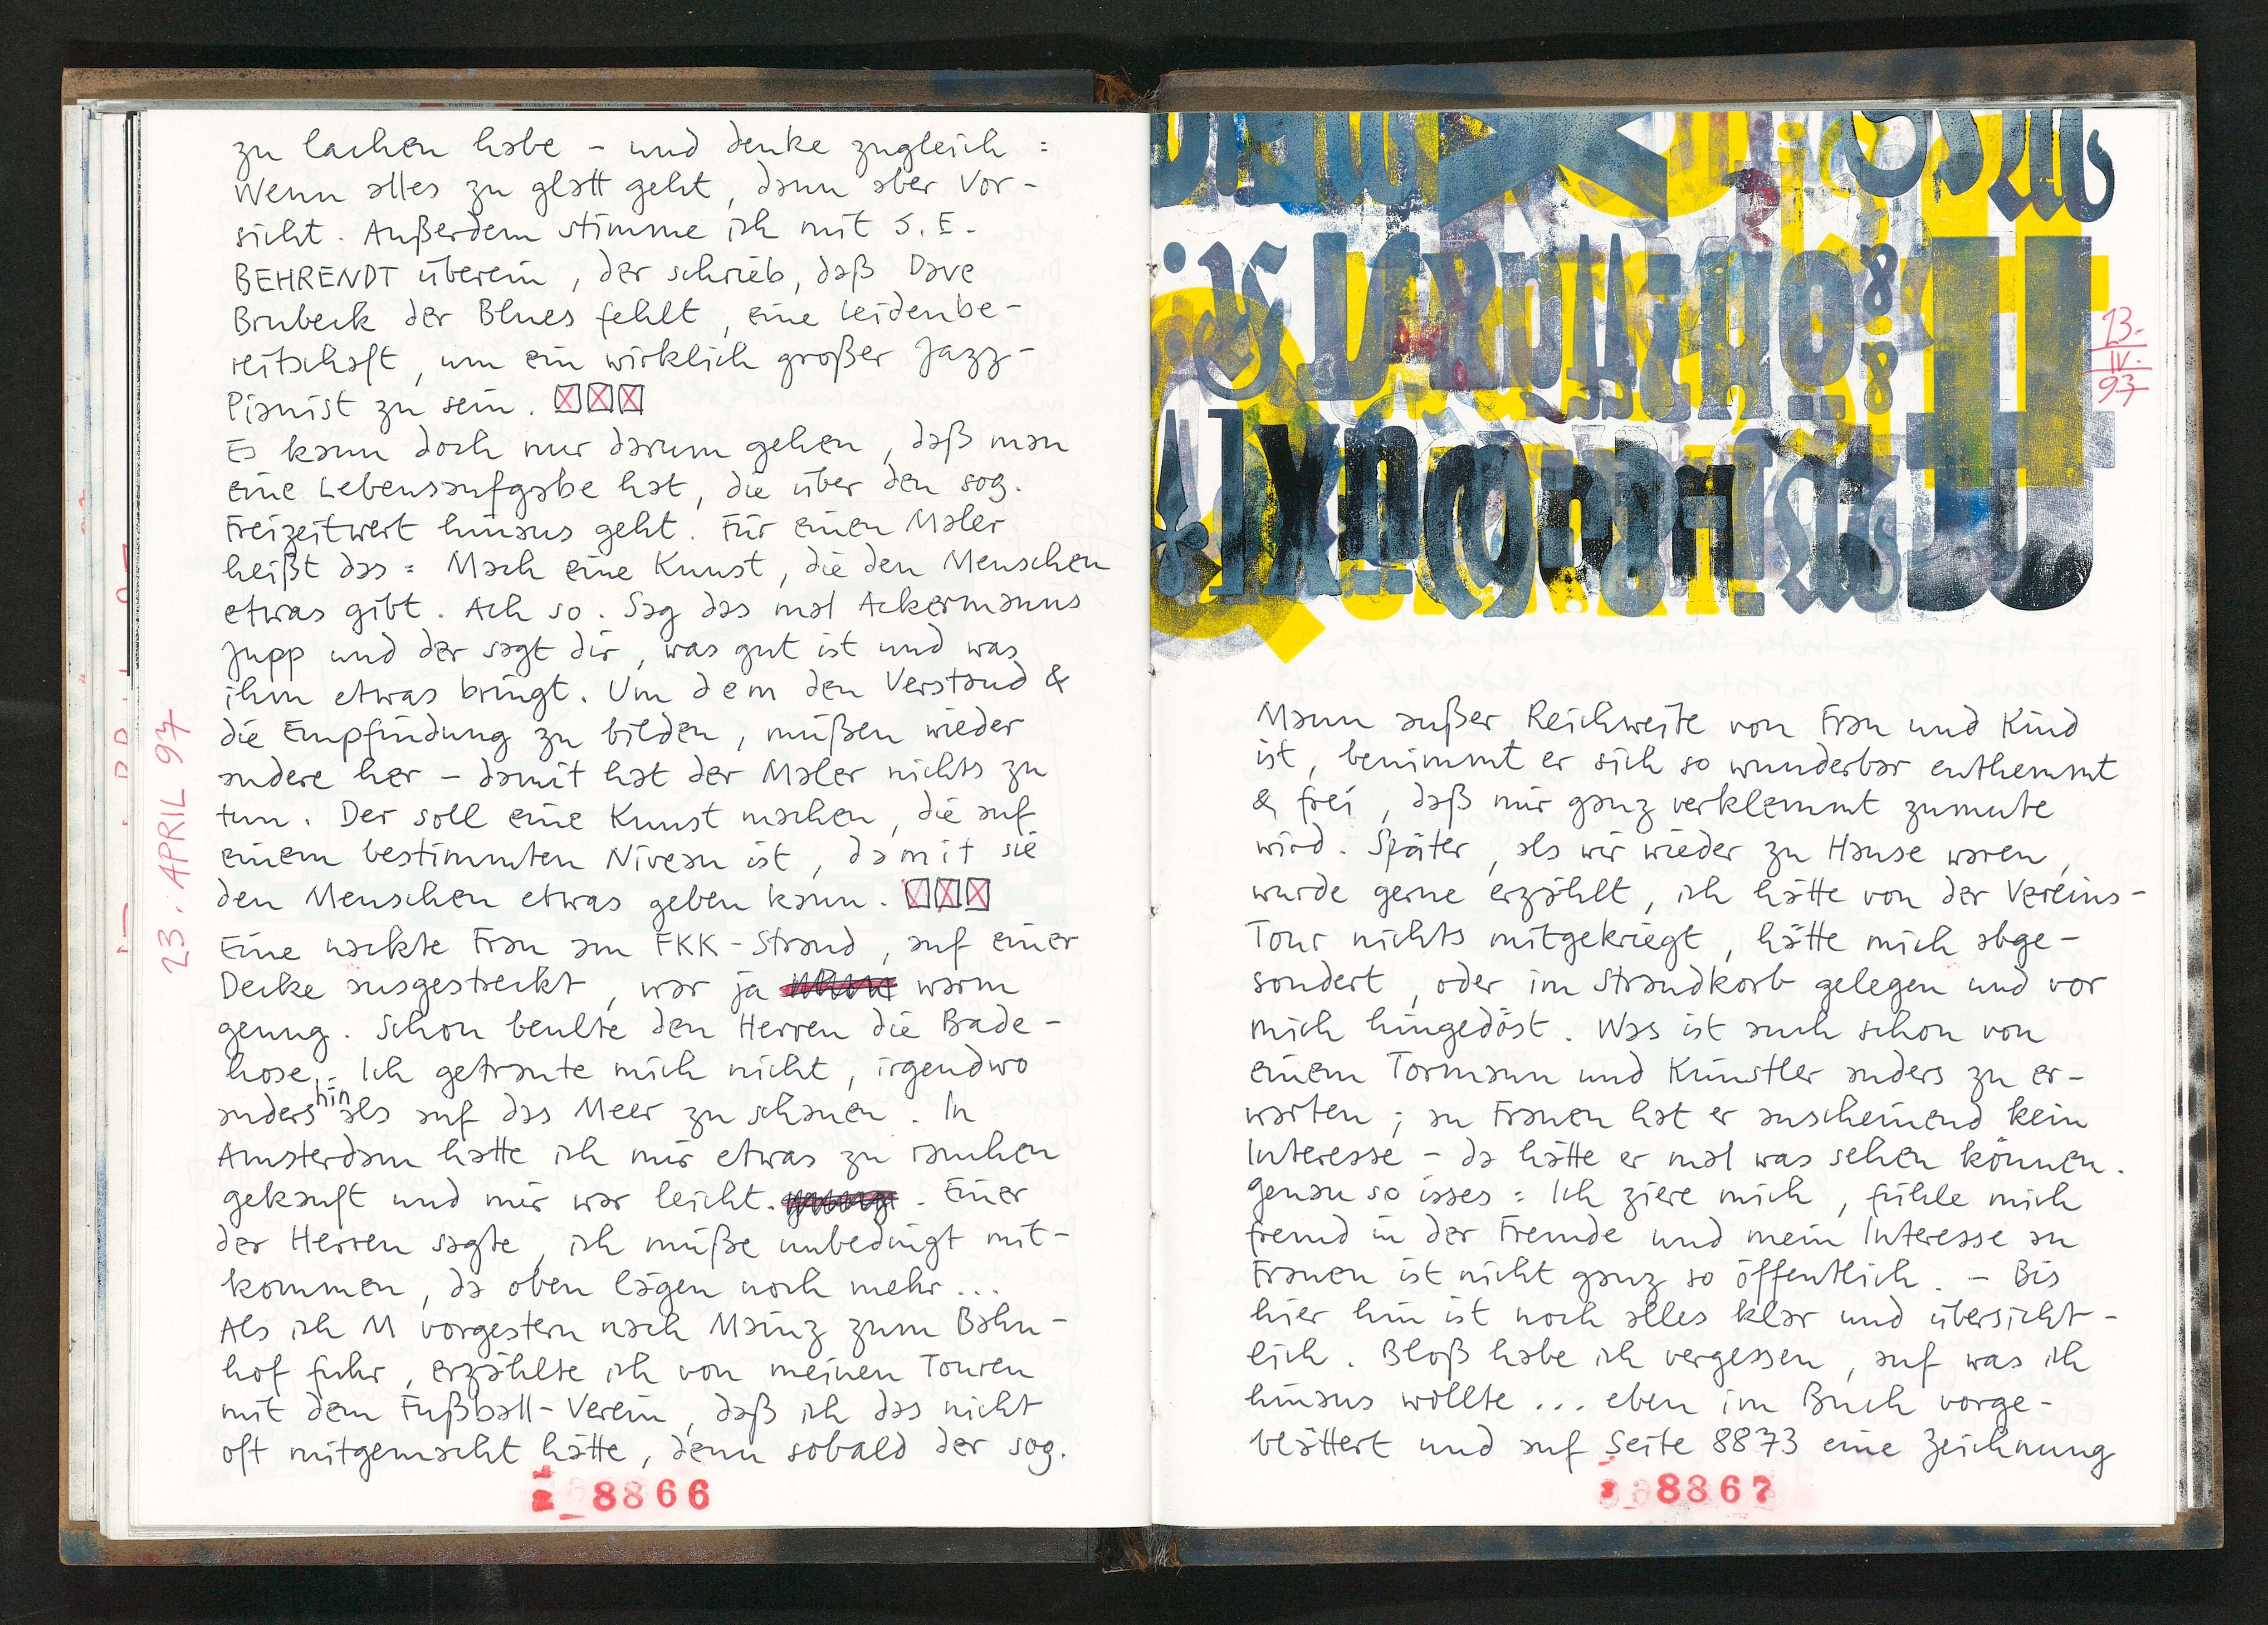 zu lachen habe – und denke zugleich :
Wenn alles zu glatt geht, dann aber Vor-
sicht. Außerdem stimme ich mit S. E.
BEHRENDT überein, der schrieb, daß Dave
Brubeck der Blues fehlt, eine Leidenbe-
reitschaft, um ein wirklich großer Jazz-
Pianist zu sein. ☒☒☒
Es kann doch nur darum gehen, daß man
eine Lebensaufgabe hat, die über den sog.
Freizeitwert hinaus geht. Für einen Maler
heißt das : Mach eine Kunst, die den Menschen
etwas gibt. Ach so. Sag das mal Ackermanns
Jupp und der sagt dir, was gut ist und was
ihm etwas bringt. Um dem den Verstand &
die Empfindung zu bilden, müßen wieder
andere her – damit hat der Maler nichts zu
tun. Der soll eine Kunst machen, die auf
einem bestimmten Niveau ist, damit sie
den Menschen etwas geben kann. ☒☒☒
Eine nackte Frau am FKK-Strand, auf einer
Decke ausgestreckt, war ja warm
genug. Schon beulte den Herren die Bade-
hose. Ich getraute mich nicht, irgendwo
anders hin als auf das Meer zu schauen. In
Amsterdam hatte ich mir etwas zu rauchen
gekauft und mir war leicht. . Einer
der Herren sagte, ich müße unbedingt mit-
kommen, da oben lägen noch mehr...
Als ich M vorgestern nach Mainz zum Bahn-
hof fuhr, erzählte ich von meinen Touren
mit dem Fußball-Verein, daß ich das nicht
oft mitgemacht hätte, denn sobald der sog.
23. APRIL 97
8866
13.
IV.
97
Mann außer Reichweite von Frau und Kind
ist, benimmt er sich so wunderbar enthemmt
& frei, daß mir ganz verklemmt zumute
wird. Später, als wir wieder zu Hause waren,
wurde gerne erzählt, ich hätte von der Vereins-
Tour nichts mitgekriegt, hätte mich abge-
sondert, oder im Strandkorb gelegen und vor
mich hingedöst. Was ist auch schon von
einem Tormann und Künstler anders zu er-
warten ; an Frauen hat er anscheinend kein
Interesse – da hätte er mal was sehen können.
Genau so isses : Ich ziere mich, fühle mich
fremd in der Fremde und mein Interesse an
Frauen ist nicht ganz so öffentlich. – Bis
hier hin ist noch alles klar und übersicht-
lich. Bloß habe ich vergessen, auf was ich
hinaus wollte ... eben im Buch vorge-
blättert und auf Seite 8873 eine Zeichnung
8867